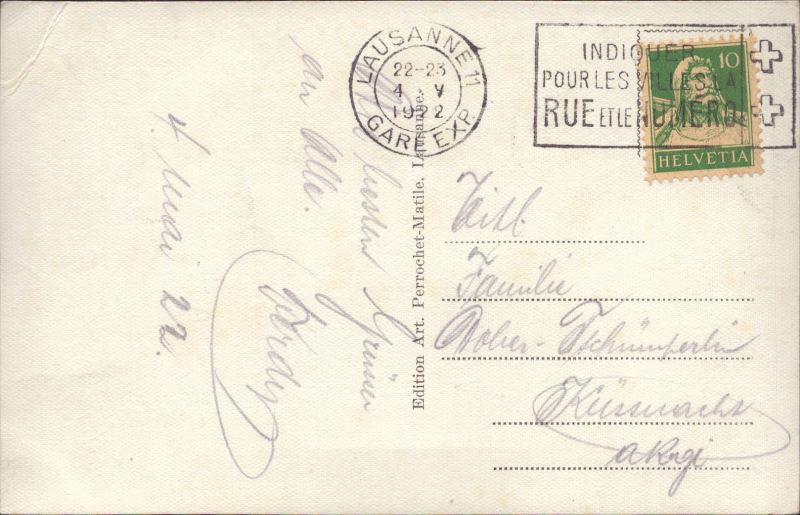 LAUSANNE 11
22-23
4 V
1922
GARE EXP.
INDIQUER
POUR LES VILLES LA
RUE ET LE NUMERO
10
HELVETIA
Mit besten Grüssen
an Alle.
Ferdy
4 Mai 22.
Edition Art. Perrochet-Matile, Lausanne.
Titl.
Familie
Dober-Tschümperlin
Küssnacht
a Rigi